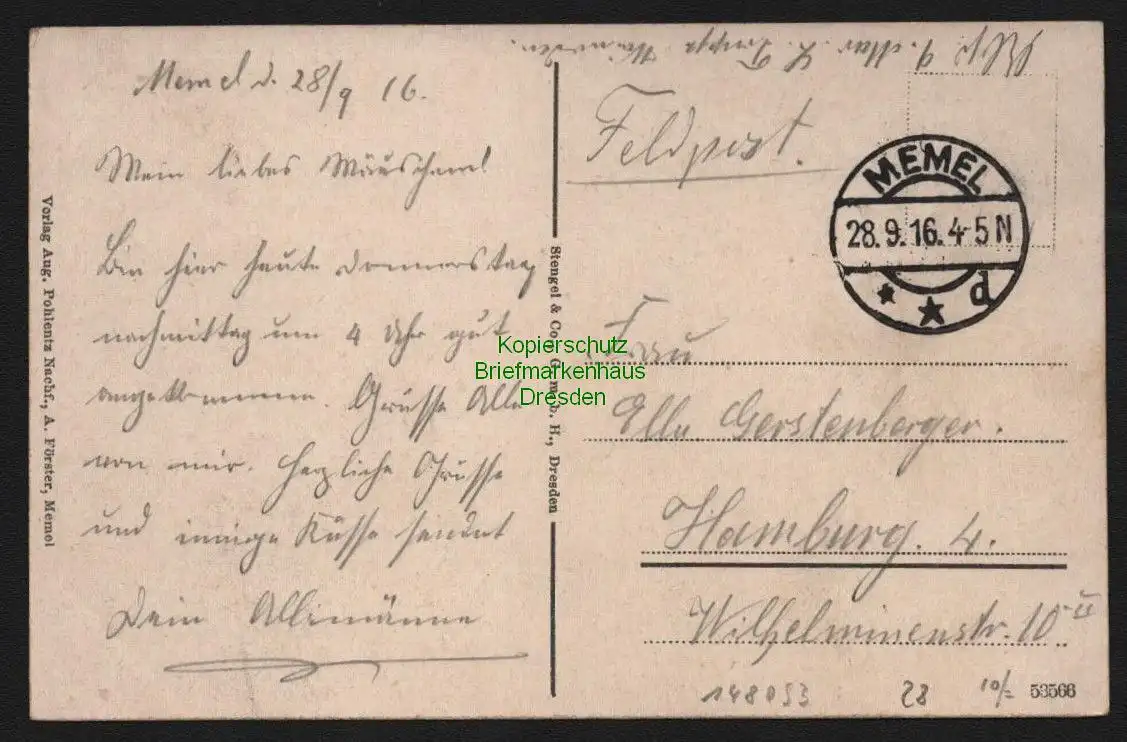 Memel d. 28/9 16.
Mein liebes Mäuschen!
Bin hier heute Donnerstag
nachmittag um 4 Uhr gut
angekommen. Grüsse Alle
von mir. Herzliche Grüsse
und innige Küsse sendet
Dein
Verlag Aug. Pohlentz Nachf., A. Förster, Memel
Stengel & Co., G. m. b. H., Dresden
Feldpost.
MEMEL
28.9.16.4-5N
* * d
Frau
Ella Gerstenberger.
Hamburg. 4.
Wilhelminenstr. 10 II
148053 28 10/=
53566
Kopierschutz
Briefmarkenhaus
Dresden